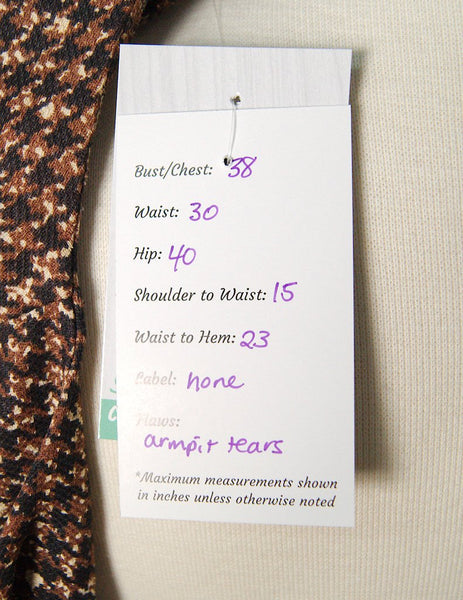 Bust/Chest: 38
Waist: 30
Hip: 40
Shoulder to Waist: 15
Waist to Hem: 23
Label: none
Flaws:
armpit tears
*Maximum measurements shown
in inches unless otherwise noted